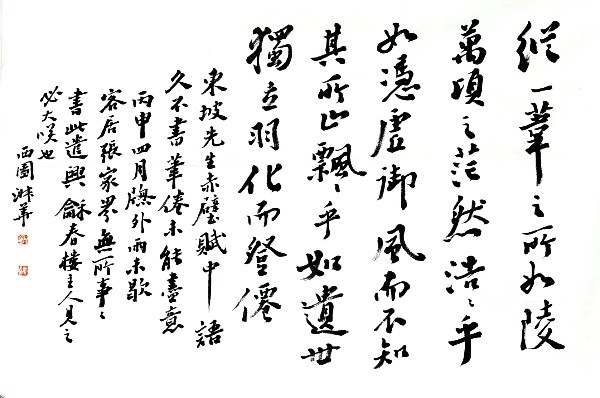 縱一葦之所如陵
萬頃之茫然浩〻乎
如憑虛御風而不知
其所止飄〻乎如遺世
獨立羽化而登僊
東坡先生赤壁賦中語
久不書筆倦未能盡意
丙申四月牕外雨未歇
客居張家界無所事〻
書此遣興龢春樓主人見之
必大咲也
西園